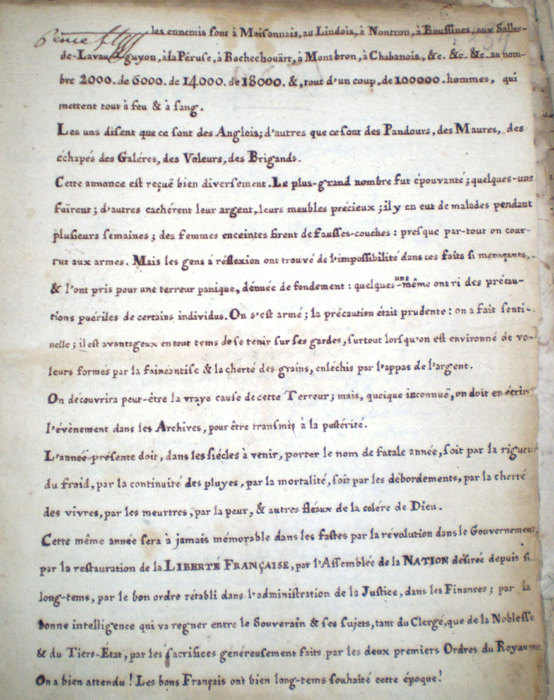 6eme les ennemis sont à Maisonnais, au Lindois, à Nontron, à Roussines, aux Salles-
de-Lavauguyon, à la Péruse, à Rochechouärt, à Montbron, à Chabanois, &c. &c. &c. au nom-
bre 2000. de 6000. de 14000. de 18000. &, tout d'un coup, de 100000. hommes, qui
mettent tout à feu & à sang.
Les uns disent que ce sont des Anglois; d'autres que ce sont des Pandours, des Maures, des
échapés des Galéres, des Voleurs, des Brigands.
Cette annonce est reçuë bien diversement. Le plus-grand nombre fut épouvanté; quelques-uns
fuïrent; d'autres cachérent leur argent, leurs meubles précieux; il y en eut de malades pendant
plusieurs semaines; des femmes enceintes firent de fausses-couches: presque par-tout on cou-
rut aux armes. Mais les gens à réflexion ont trouvé de l'impossibilité dans ces faits si menaçants,
& l'ont pris pour une terreur panique, dénuée de fondement: quelques-uns même ont ri des précau-
tions puériles de certains individus. On s'est armé; la précaution était prudente: on a fait senti-
nelle; il est avantageux en tout tems de se tenir sur ses gardes, surtout lorsqu'on est environné de vo-
leurs formés par la fainéantise & la cherté des grains, enléchis par l'appas de l'argent.
On découvrira peut-être la vraye cause de cette Terreur; mais, quoique inconnuë, on doit en écrire
l'évènement dans les Archives, pour être transmis à la postérité.
L'année présente doit, dans les siécles à venir, porter le nom de fatale année, soit par la rigueur
du froid, par la continuité des pluyes, par la mortalité, soit par les débordements, par la cherté
des vivres, par les meurtres, par la peur, & autres fléaux de la colére de Dieu.
Cette même année sera à jamais mémorable dans les fastes par la révolution dans le Gouvernement,
par la restauration de la LIBERTÉ FRANÇAISE, par l'Assemblée de la NATION désirée depuis si
long-tems, par le bon ordre rétabli dans l'administration de la Justice, dans les Finances; par la
bonne intelligence qui va regner entre le Souverain & ses sujets, tant du Clergé, que de la Noblesse
& du Tiers-État, par les sacrifices généreusement faits par les deux premiers Ordres du Royaume
On a bien attendu! Les bons Français ont bien long-tems souhaité cette époque!